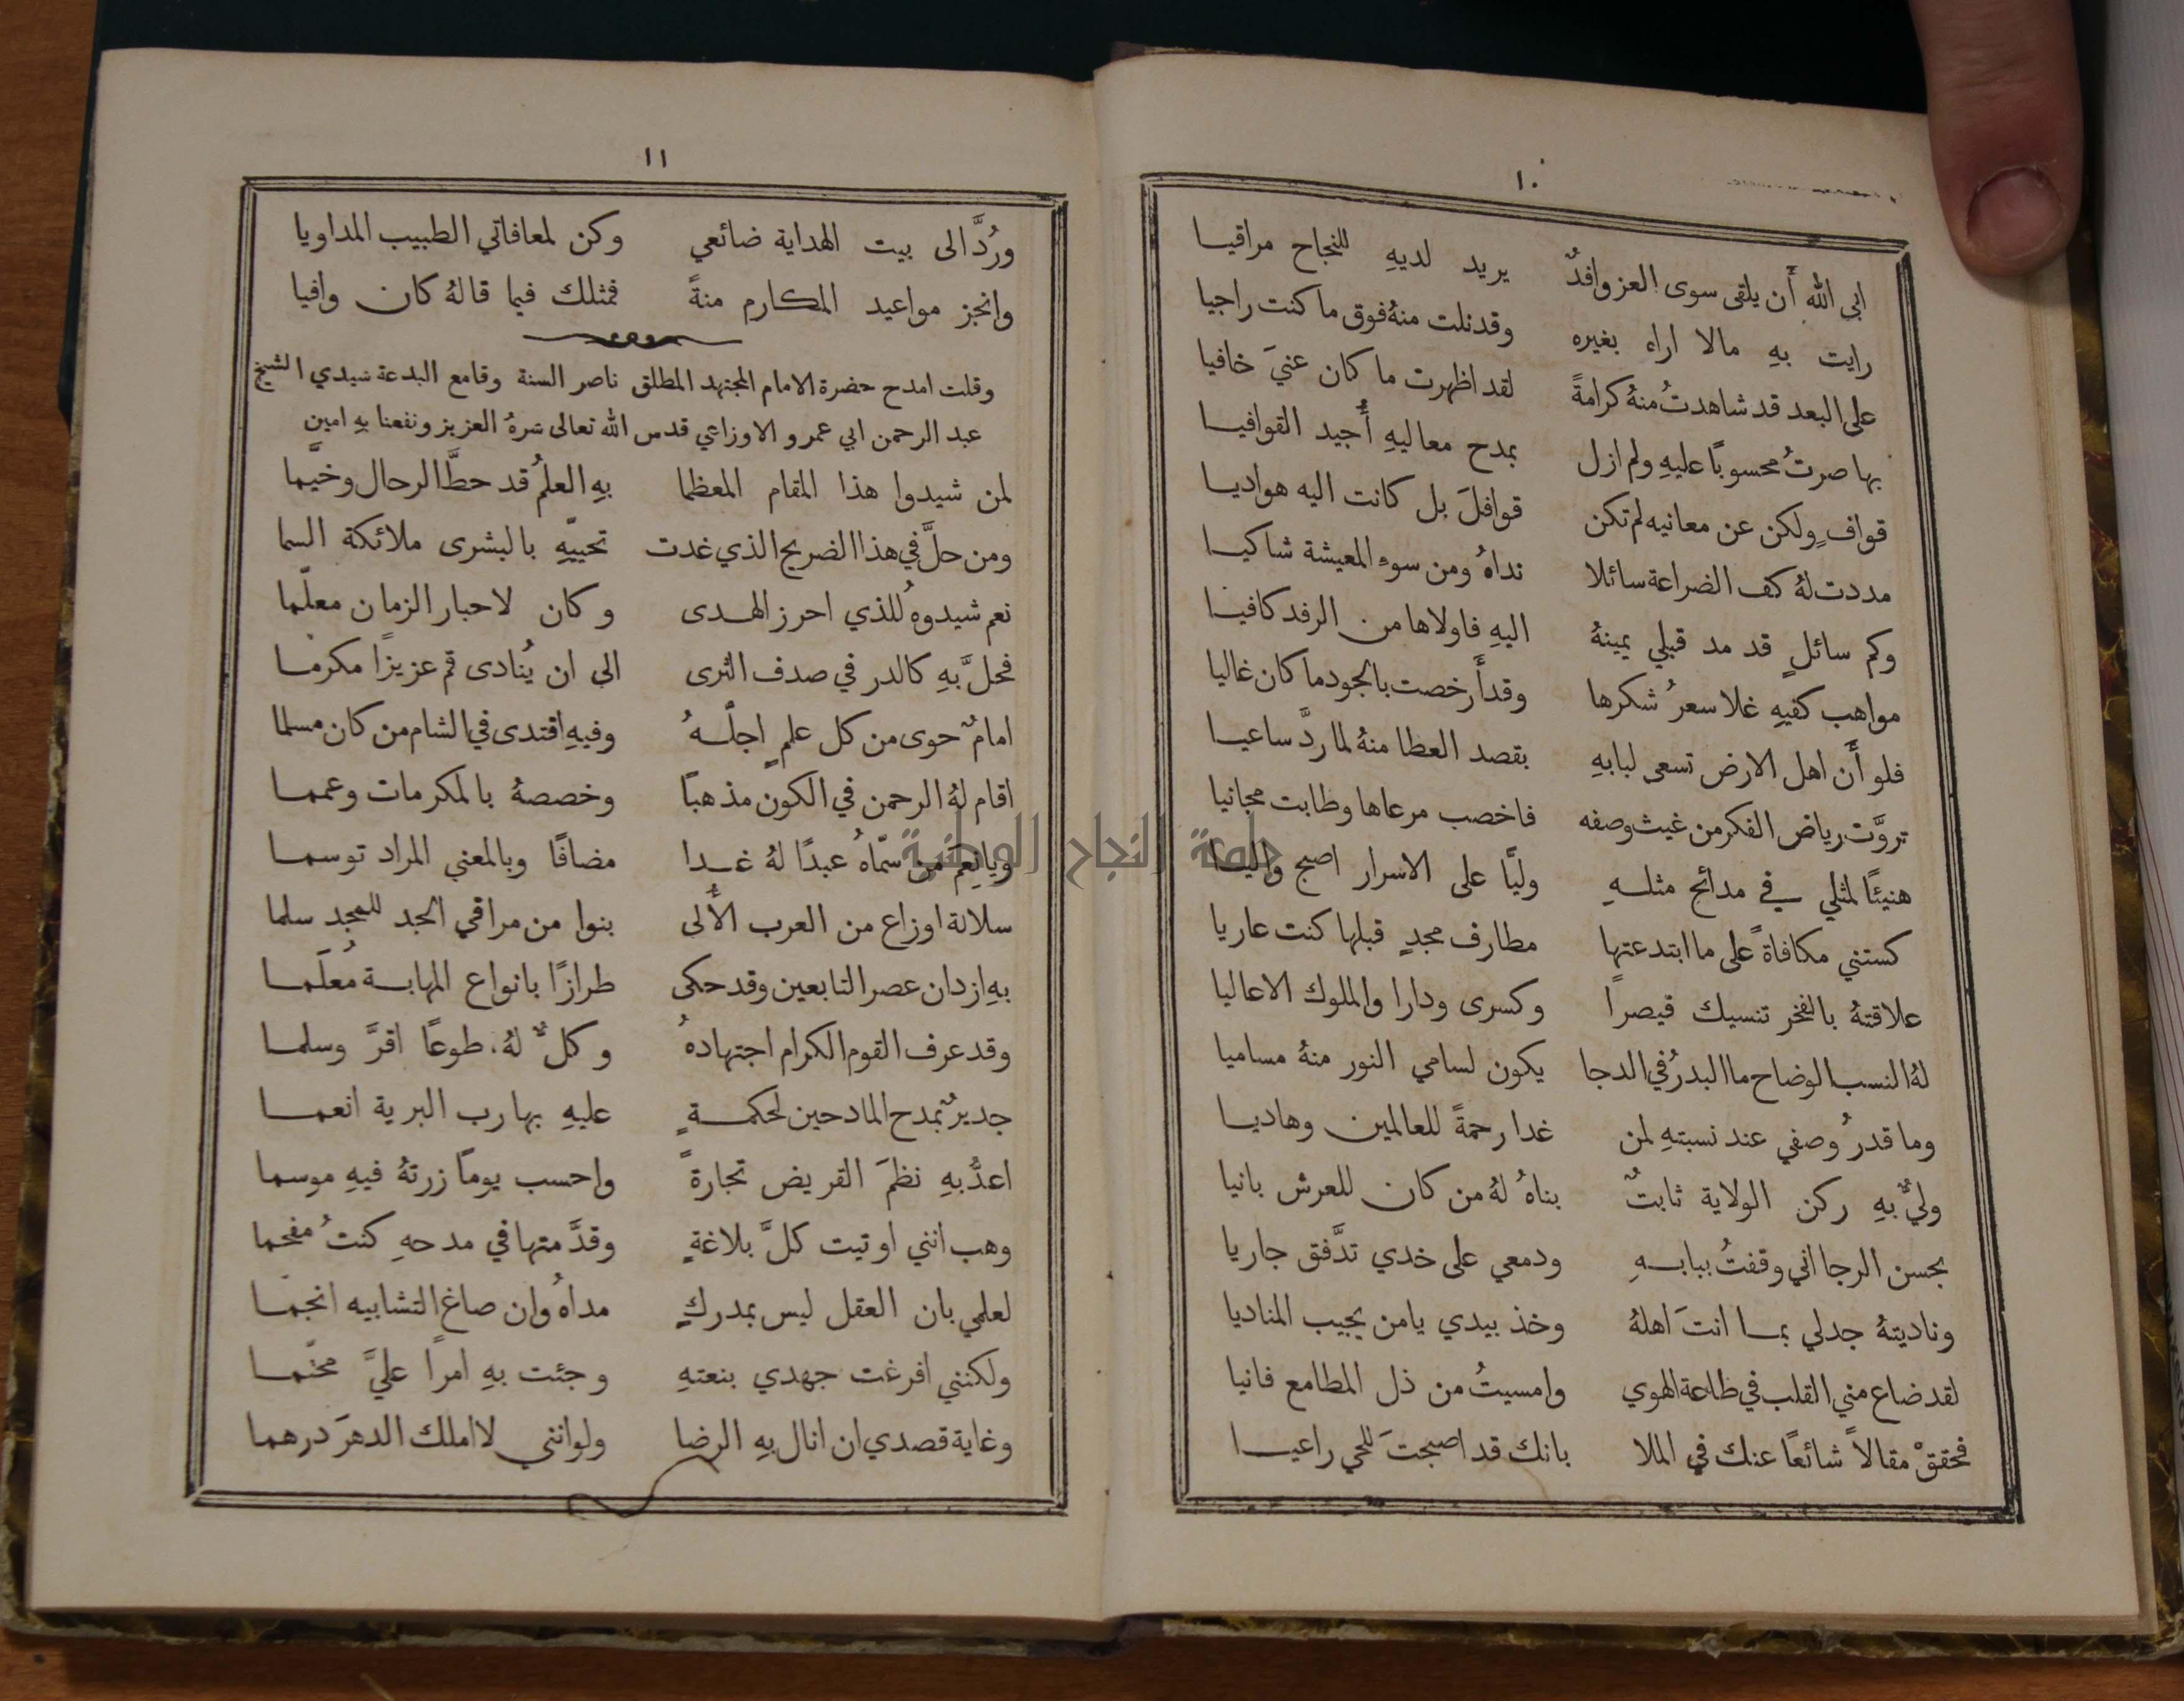 ١٠
ابى الله أن يلقى سوى العز وافدٌ يريد لديهِ للنجاح مراقيا
رايت بهِ مالا اراه بغيره وقد نلت منهُ فوق ما كنت راجيا
على البعد قد شاهدتُ منهُ كرامةً لقد اظهرت ما كان عنيَ خافيا
بها صرتُ محسوبًا عليهِ ولم ازل بمدح معاليهِ أُجيد القوافيا
قوافٍ ولكن عن معانيه لم تكن قوافلَ بل كانت اليه هواديا
مددت لهُ كف الضراعة سائلا نداهُ ومن سوء المعيشة شاكيا
وكم سائلٍ قد مد قبلي يمينهُ اليهِ فاولاها من الرفد كافيا
مواهب كفيهِ غلا سعرُ شكرها وقد أَرخصت بالجود ما كان غاليا
فلو أَن اهل الارض تسعى لبابهِ بقصد العطا منهُ لما ردَّ ساعيا
تروَّت رياض الفكر من غيث وصفه فاخصب مرعاها وطابت مجانيا
هنيئًا لمثلي في مدائح مثلهِ وليًّا على الاسرار اصبح واليا
كستني مكافاةً على ما ابتدعتها مطارف مجدٍ قبلها كنت عاريا
علاقتهُ بالفخر تنسيك قيصرًا وكسرى ودارا والملوك الاعاليا
لهُ النسب الوضاح ما البدرُ في الدجا يكون لسامي النور منهُ مساميا
وما قدرُ وصفي عند نسبتهِ لمن غدا رحمةً للعالمين وهاديا
وليٌّ بهِ ركن الولاية ثابتٌ بناهُ لهُ من كان للعرش بانيا
بحسن الرجا اني وقفتُ ببابهِ ودمعي على خدي تدَّفق جاريا
وناديتهُ جدلي بما انتَ اهلهُ وخذ بيدي يا من يجيب المناديا
لقد ضاع مني القلب في طاعة الهوي وامسيتُ من ذل المطامع فانيا
فحققْ مقالاً شائعًا عنك في الملا بانك قد اصبحتَ للحي راعيا
١١
ورُدَّ الى بيت الهداية ضائعي وكن لمعافاتي الطبيب المداويا
وانجز مواعيد المكارم منةً فمثلك فيما قالهُ كان وافيا
وقلت امدح حضرة الامام المجتهد المطلق ناصر السنة وقامع البدعة سيدي الشيخ
عبد الرحمن ابي عمرو الاوزاعي قدس الله تعالى سرهُ العزيز ونفعنا بهِ امين
لمن شيدوا هذا المقام المعظما بهِ العلمُ قد حطَّ الرحال وخيَّما
ومن حلَّ في هذا الضريح الذي غدت تحييّهِ بالبشرى ملائكة السما
نعم شيدوهُ للذي احرز الهدى وكان لاحبار الزمان معلّما
فحلَّ بهِ كالدر في صدف الثرى الى ان يُنادى قم عزيزًا مكرما
امامٌ حوى من كل علمٍ اجلّهُ وفيهِ اقتدى في الشام من كان مسلما
اقام لهُ الرحمن في الكون مذهبًا وخصصهُ بالمكرمات وعمما
ويا نعم من سمّاهُ عبدًا لهُ غدا مضافًا وبالمعني المراد توسما
سلالة اوزاع من العرب الأُلى بنوا من مراقي الجد للمجد سلما
بهِ ازدان عصر التابعين وقد حكى طرازًا بانواع المهابة مُعلَما
وقد عرف القوم الكرام اجتهادهُ وكلٌّ لهُ طوعًا اقرَّ وسلما
جديرٌ بمدح المادحين لحكمةٍ عليهِ بها رب البرية انعما
اعدُّ بهِ نظمَ القريض تجارةً واحسب يومًا زرتهُ فيهِ موسما
وهب انني اوتيت كلَّ بلاغةٍ وقدَّمتها في مدحهِ كنتُ مفحما
لعلمي بان العقل ليس بمدركٍ مداهُ وان صاغ التشابيه انجما
ولكنني افرغت جهدي بنعتهِ وجئت بهِ امرًا عليَّ محتّما
وغاية قصدي ان انال بهِ الرضا ولو انني لا املك الدهرَ درهما
جامعة النجاح الوطنية